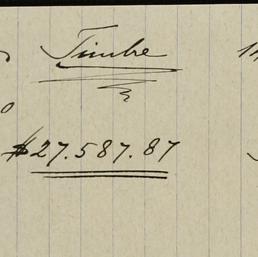 Timbre
$27.587.87